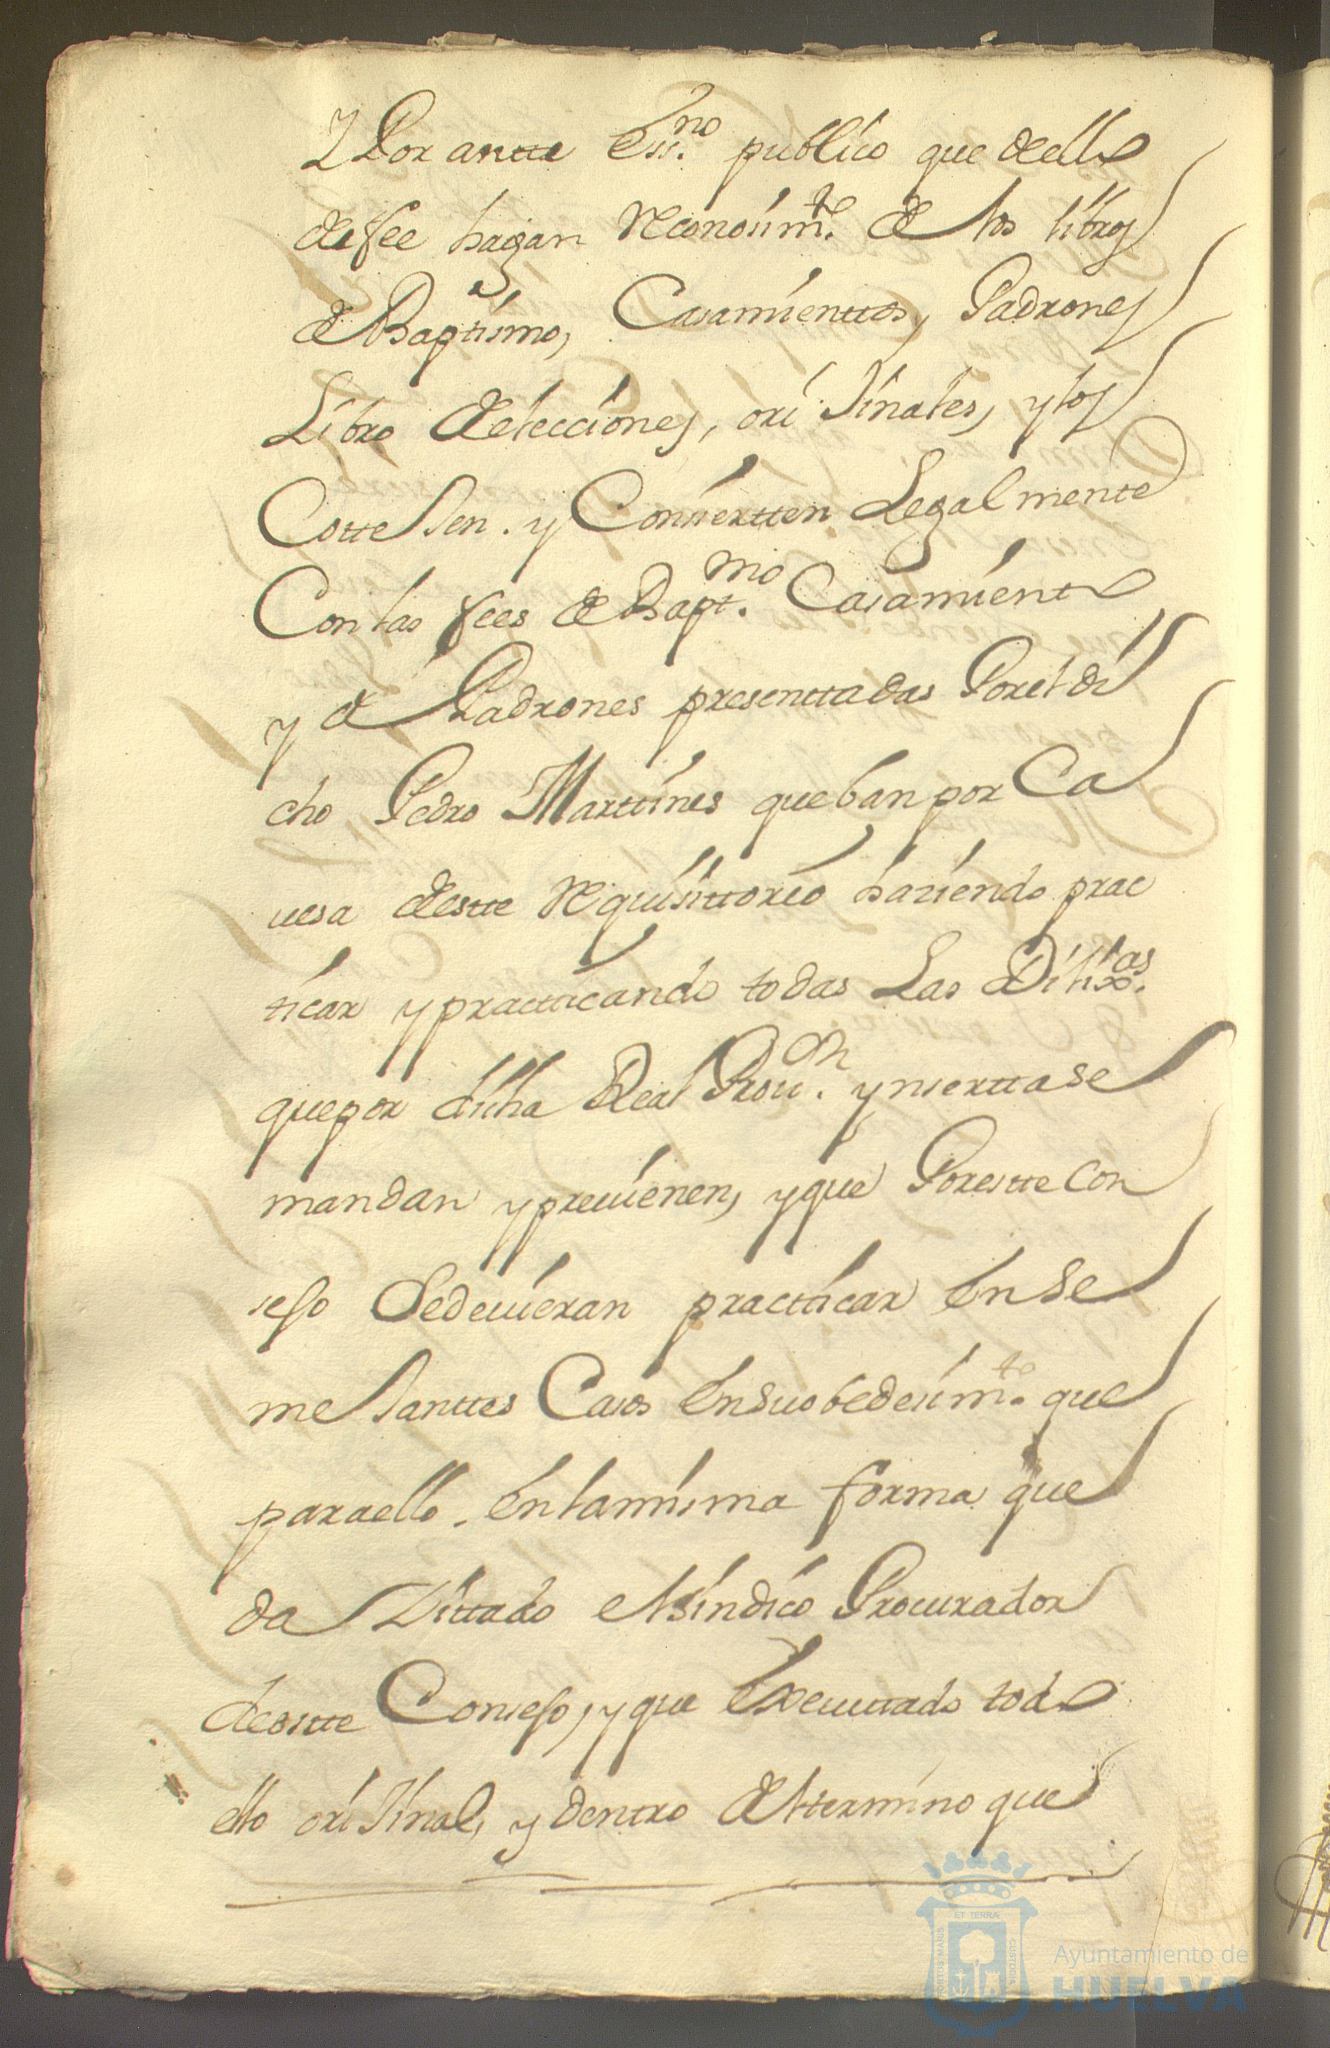 Y Por antte Ess.no publico que de ello
de fee hagan Reconosim.to de los libros
de Baptismo, Casamienttos, Padrones
Libro de elecciones, orijinales, y los
Cottejen. y Conviertten Legalmente
Con las fees de Bapt.mo Casamiento
y de Padrones presenttadas Por el di
cho Pedro Marttines que ban por Ca
vesa de estte Requisittorio haziendo prac
ticar y practticando todas Las Dilix.as
que por dicha Real Prov.on ynsertta se
mandan y previenen, y que Por estte Con
sejo Se devieran practicar En Se
mejanttes Casos En su obedesim.to que
para ello. En la misma forma que
da Visttado el Sindico Procurador
de estte Consejo, y que Executtado todo
ello orijinal, y dentro del ttermino que
ET TERRÆ
PORTUS MARIS
CUSTODIA
Ayuntamiento de
HUELVA